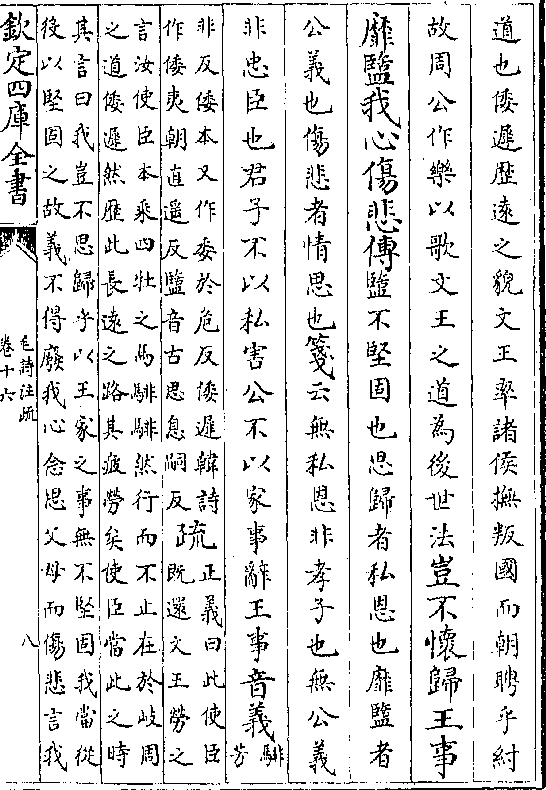 道也倭遲歴逺之貌文王率諸侯撫叛國而朝聘乎紂
故周公作樂以歌文王之道為後世法豈不懷歸王事
靡盬我心傷悲傳盬不堅固也思歸者私恩也靡盬者
公義也傷悲者情思也箋云無私恩非孝子也無公義
非忠臣也君子不以私害公不以家事辭王事音義騑芳
非反倭本又作委於危反倭遲韓詩
作倭夷朝直遥反盬音古思息嗣反疏正義曰此使臣
既還文王勞之
言汝使臣本乘四牡之馬騑騑然行而不止在於岐周
之道倭遲然歴此長逺之路其疲勞矣使臣當此之時
其言曰我豈不思歸乎以王家之事無不堅固我當從
後以堅固之故義不得廢我心念思父母而傷悲言我
欽定四庫全書
毛詩注疏
卷十六
八